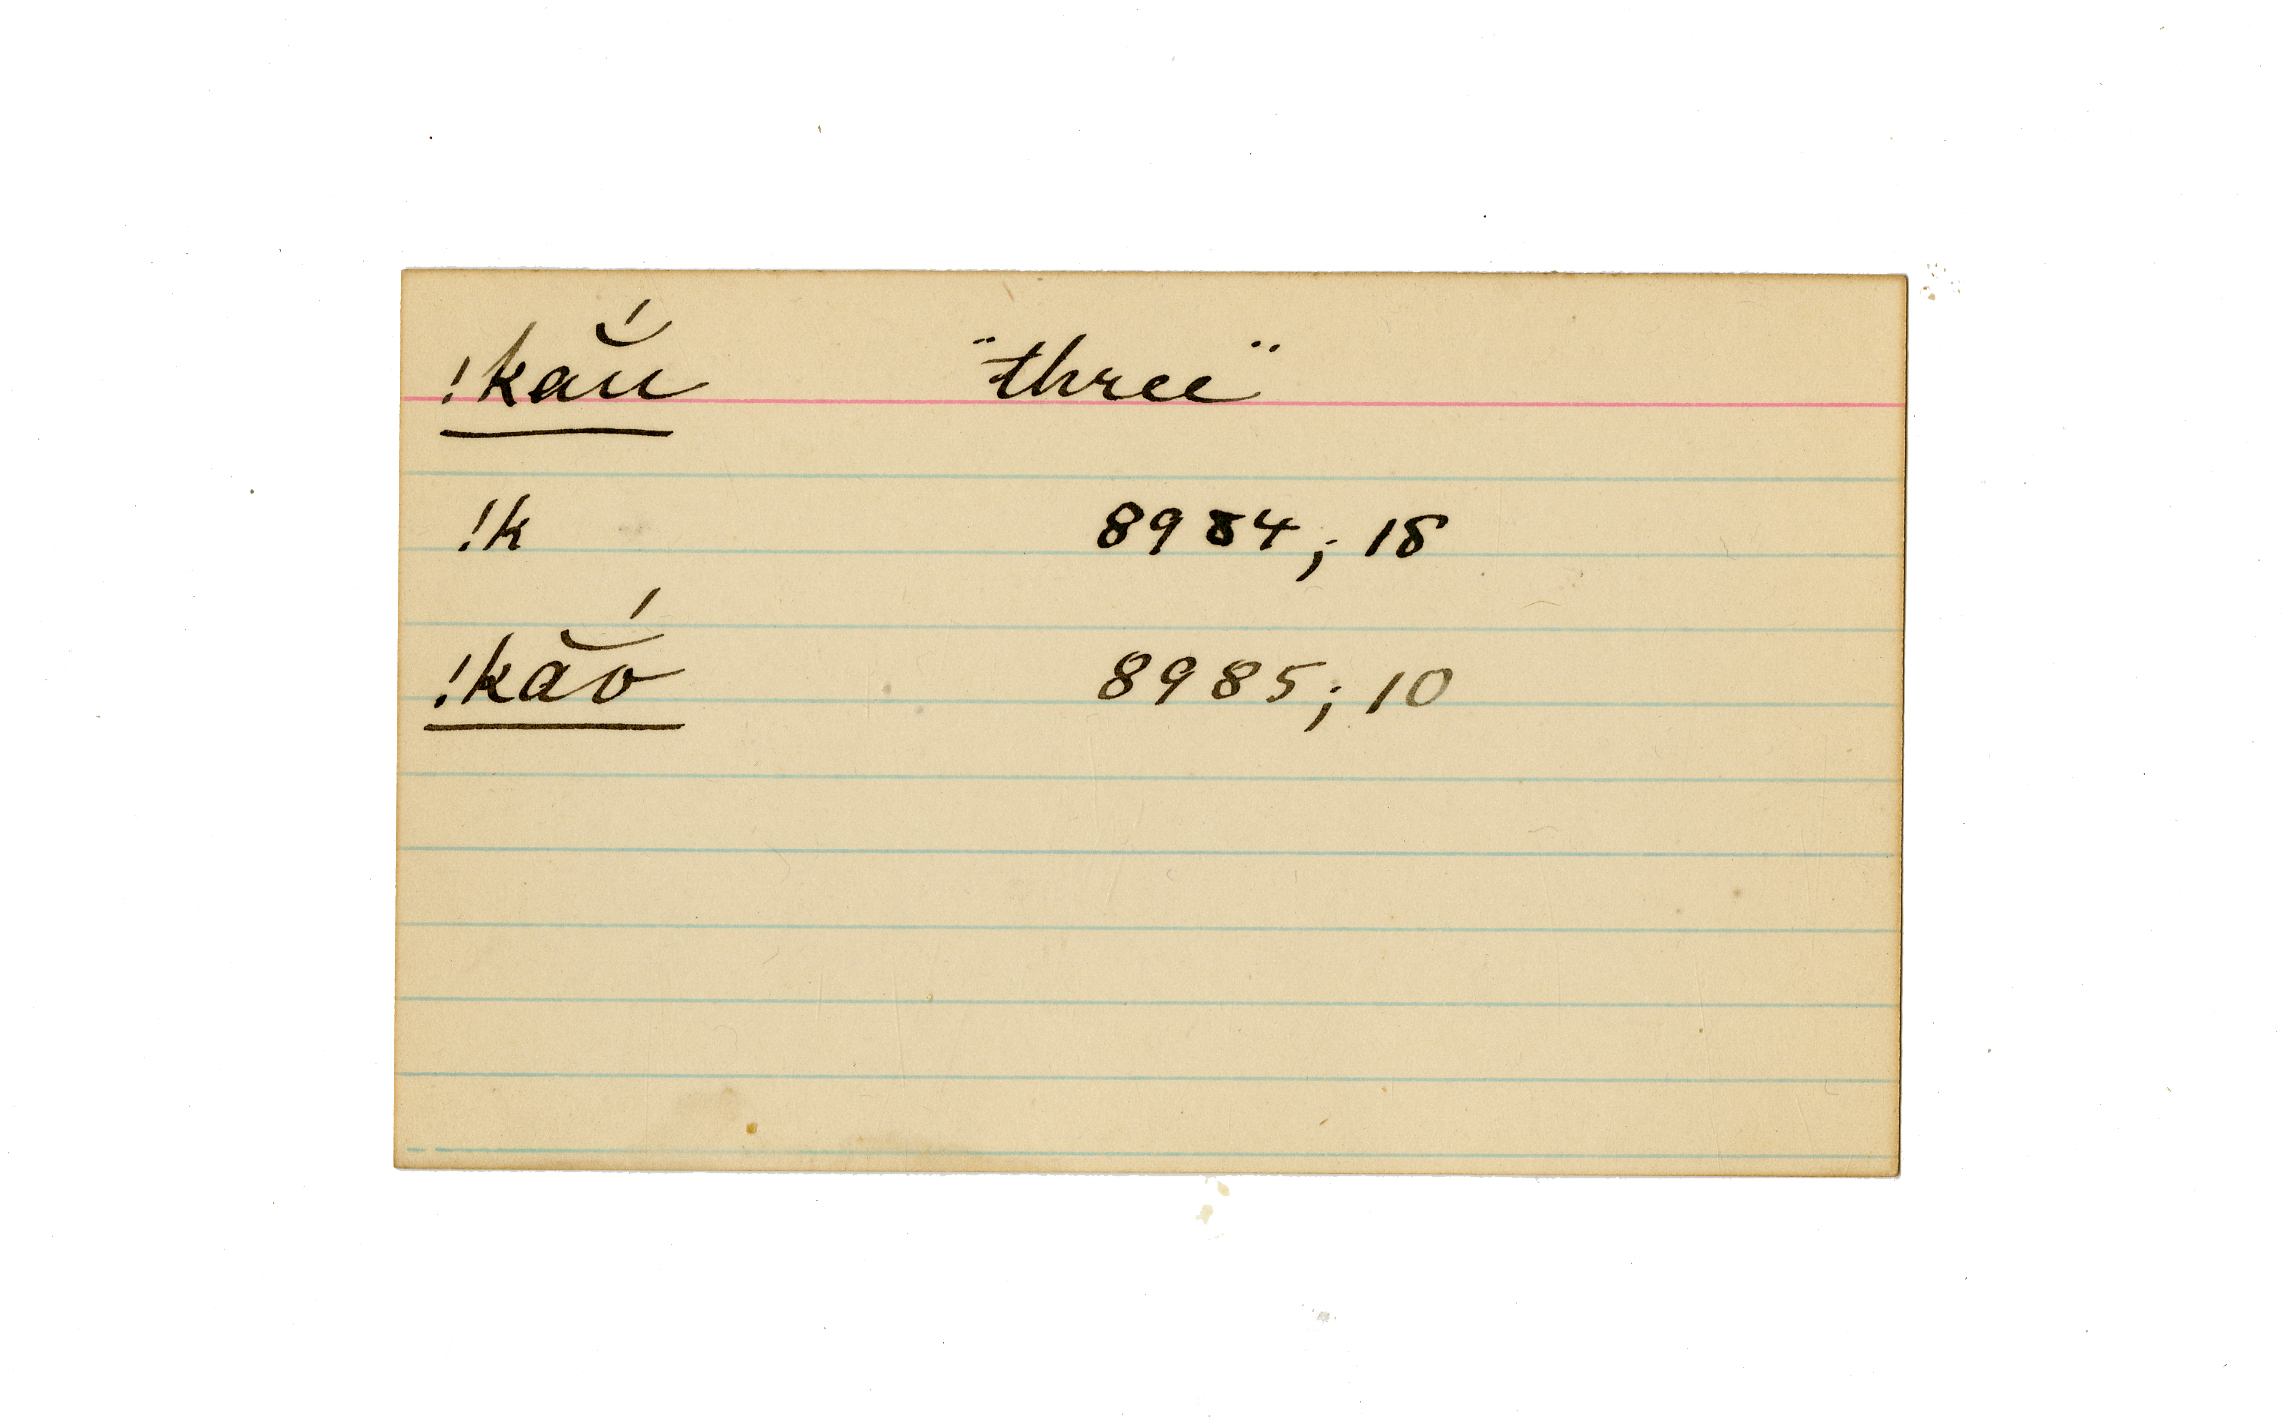 !kaŭ́ "three"
!k 8984; 18
!kăó 8985; 10